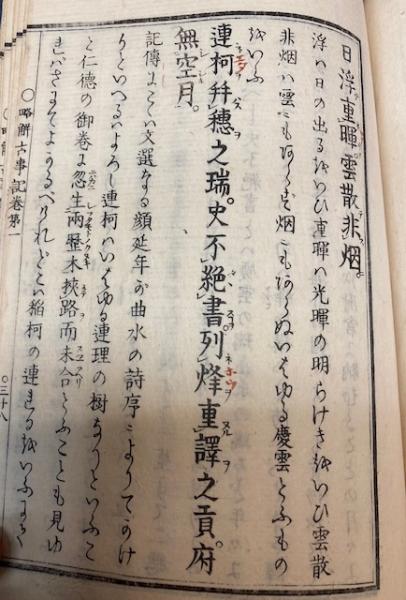 日浮重暉雲散非烟。
浮ハ日の出るをいひ重暉ハ光暉の明らけきをいひ雲散
非烟ハ雲にもあらず烟にもあらぬいはゆる慶雲とふもの
をいふ
連柯幷穗之瑞。史不絶書。列烽重譯之貢。府
無空月。
記傳にこハ文選なる顔延年が曲水の詩序によりてかけ
りといへるハよろし連柯ハいはゆる連理の樹なりといふこ
と仁德の御卷に忽生兩歷木挾路而末合とふことも見ゆ
れバさてもよかるべけれどこハ稲柯の連れるをいふ
〇略解古事記卷第一
〇三十八